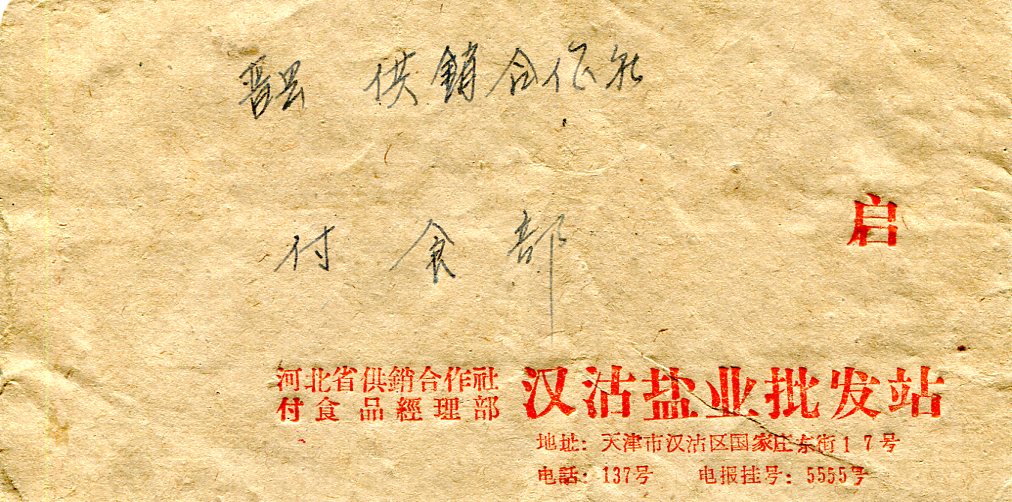 晋县 供銷合作社
付食部
启
河北省供銷合作社
付食品經理部
汉沽盐业批发站
地址: 天津市汉沽区国家庄东街17号
电話: 137号 电报挂号: 5555号